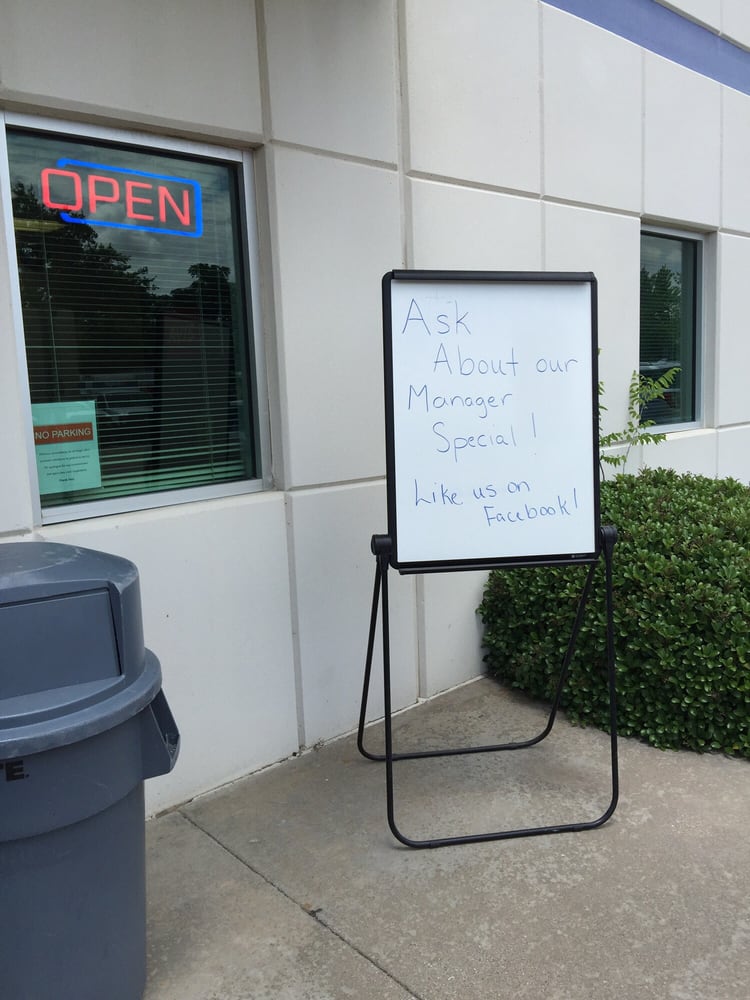 OPEN
NO PARKING
Ask
About our
Manager
Special!
Like us on
Facebook!